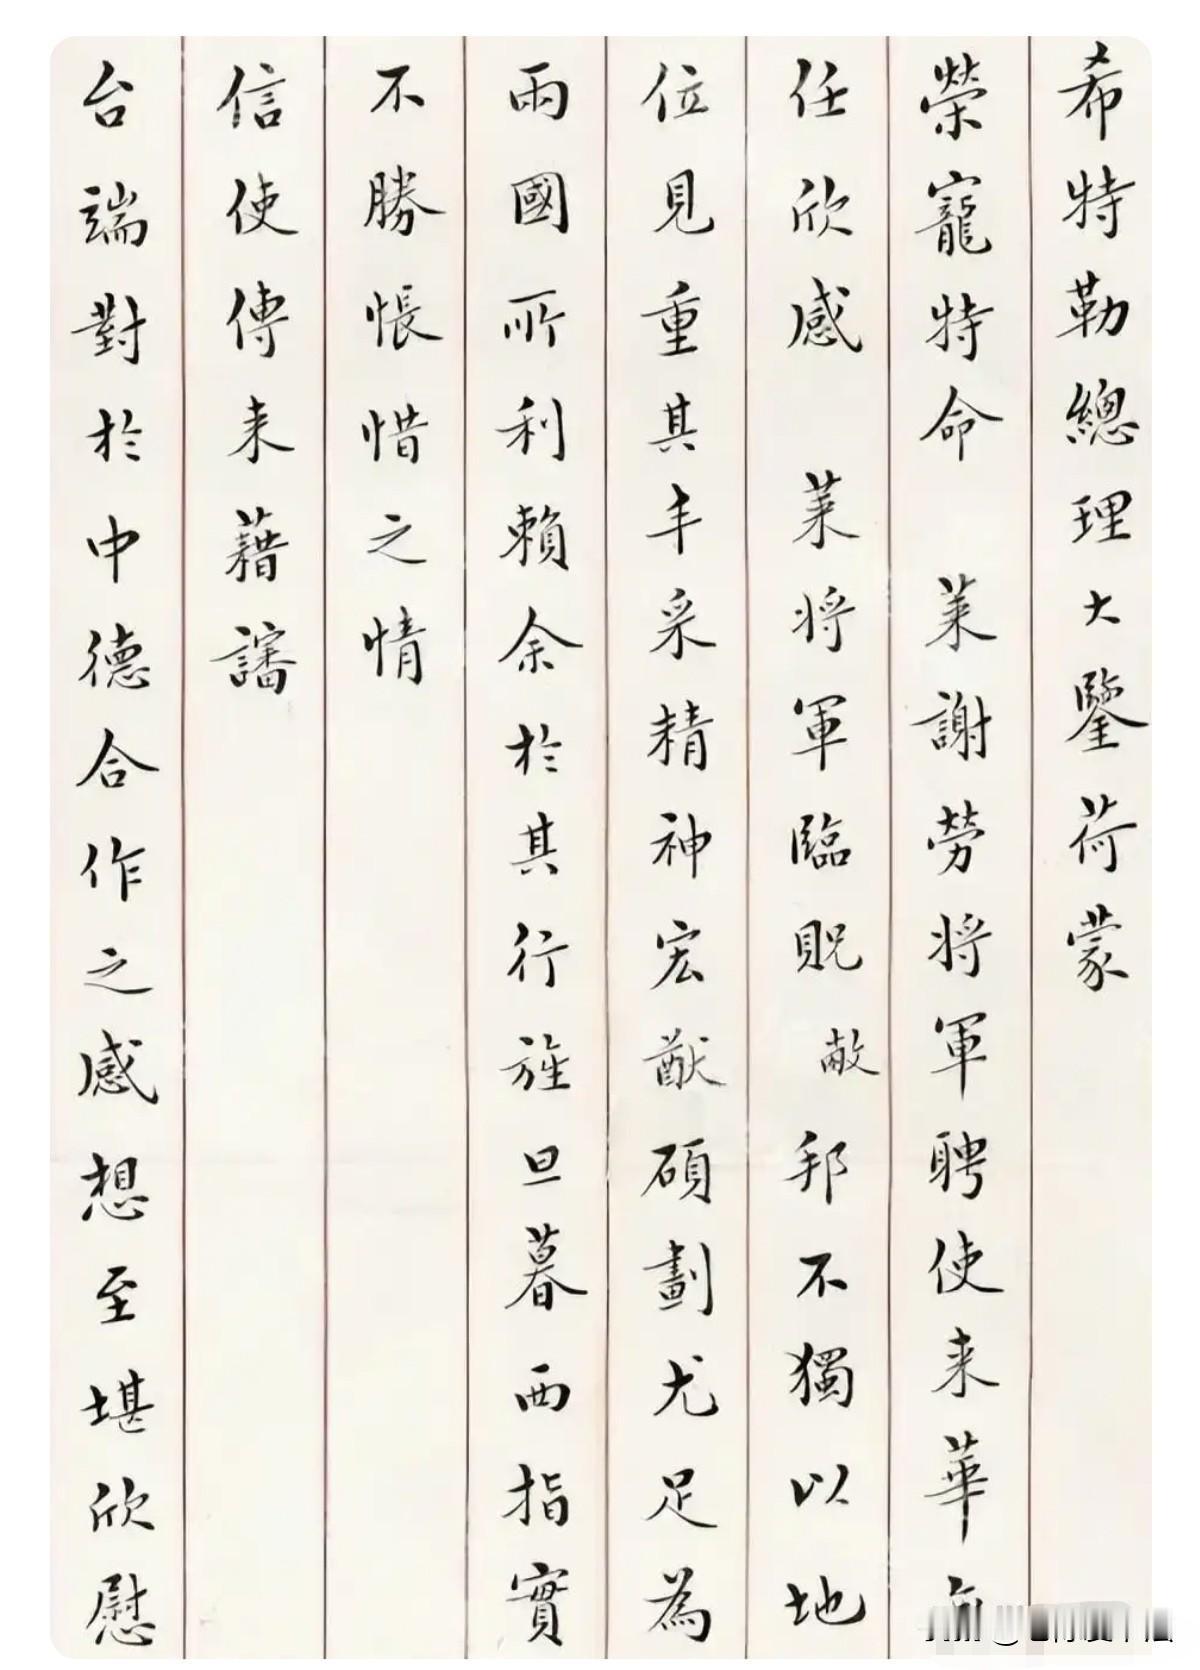 希特勒總理大鑒荷蒙
榮寵特命 萊謝勞將軍聘使来華
任欣感 萊将軍臨貺敝邦不獨以地
位見重其丰采精神宏猷碩劃尤足為
兩國所利賴余於其行旌旦暮西指實
不勝悵惜之情
信使傳来藉讅
台端對於中德合作之感想至堪欣慰